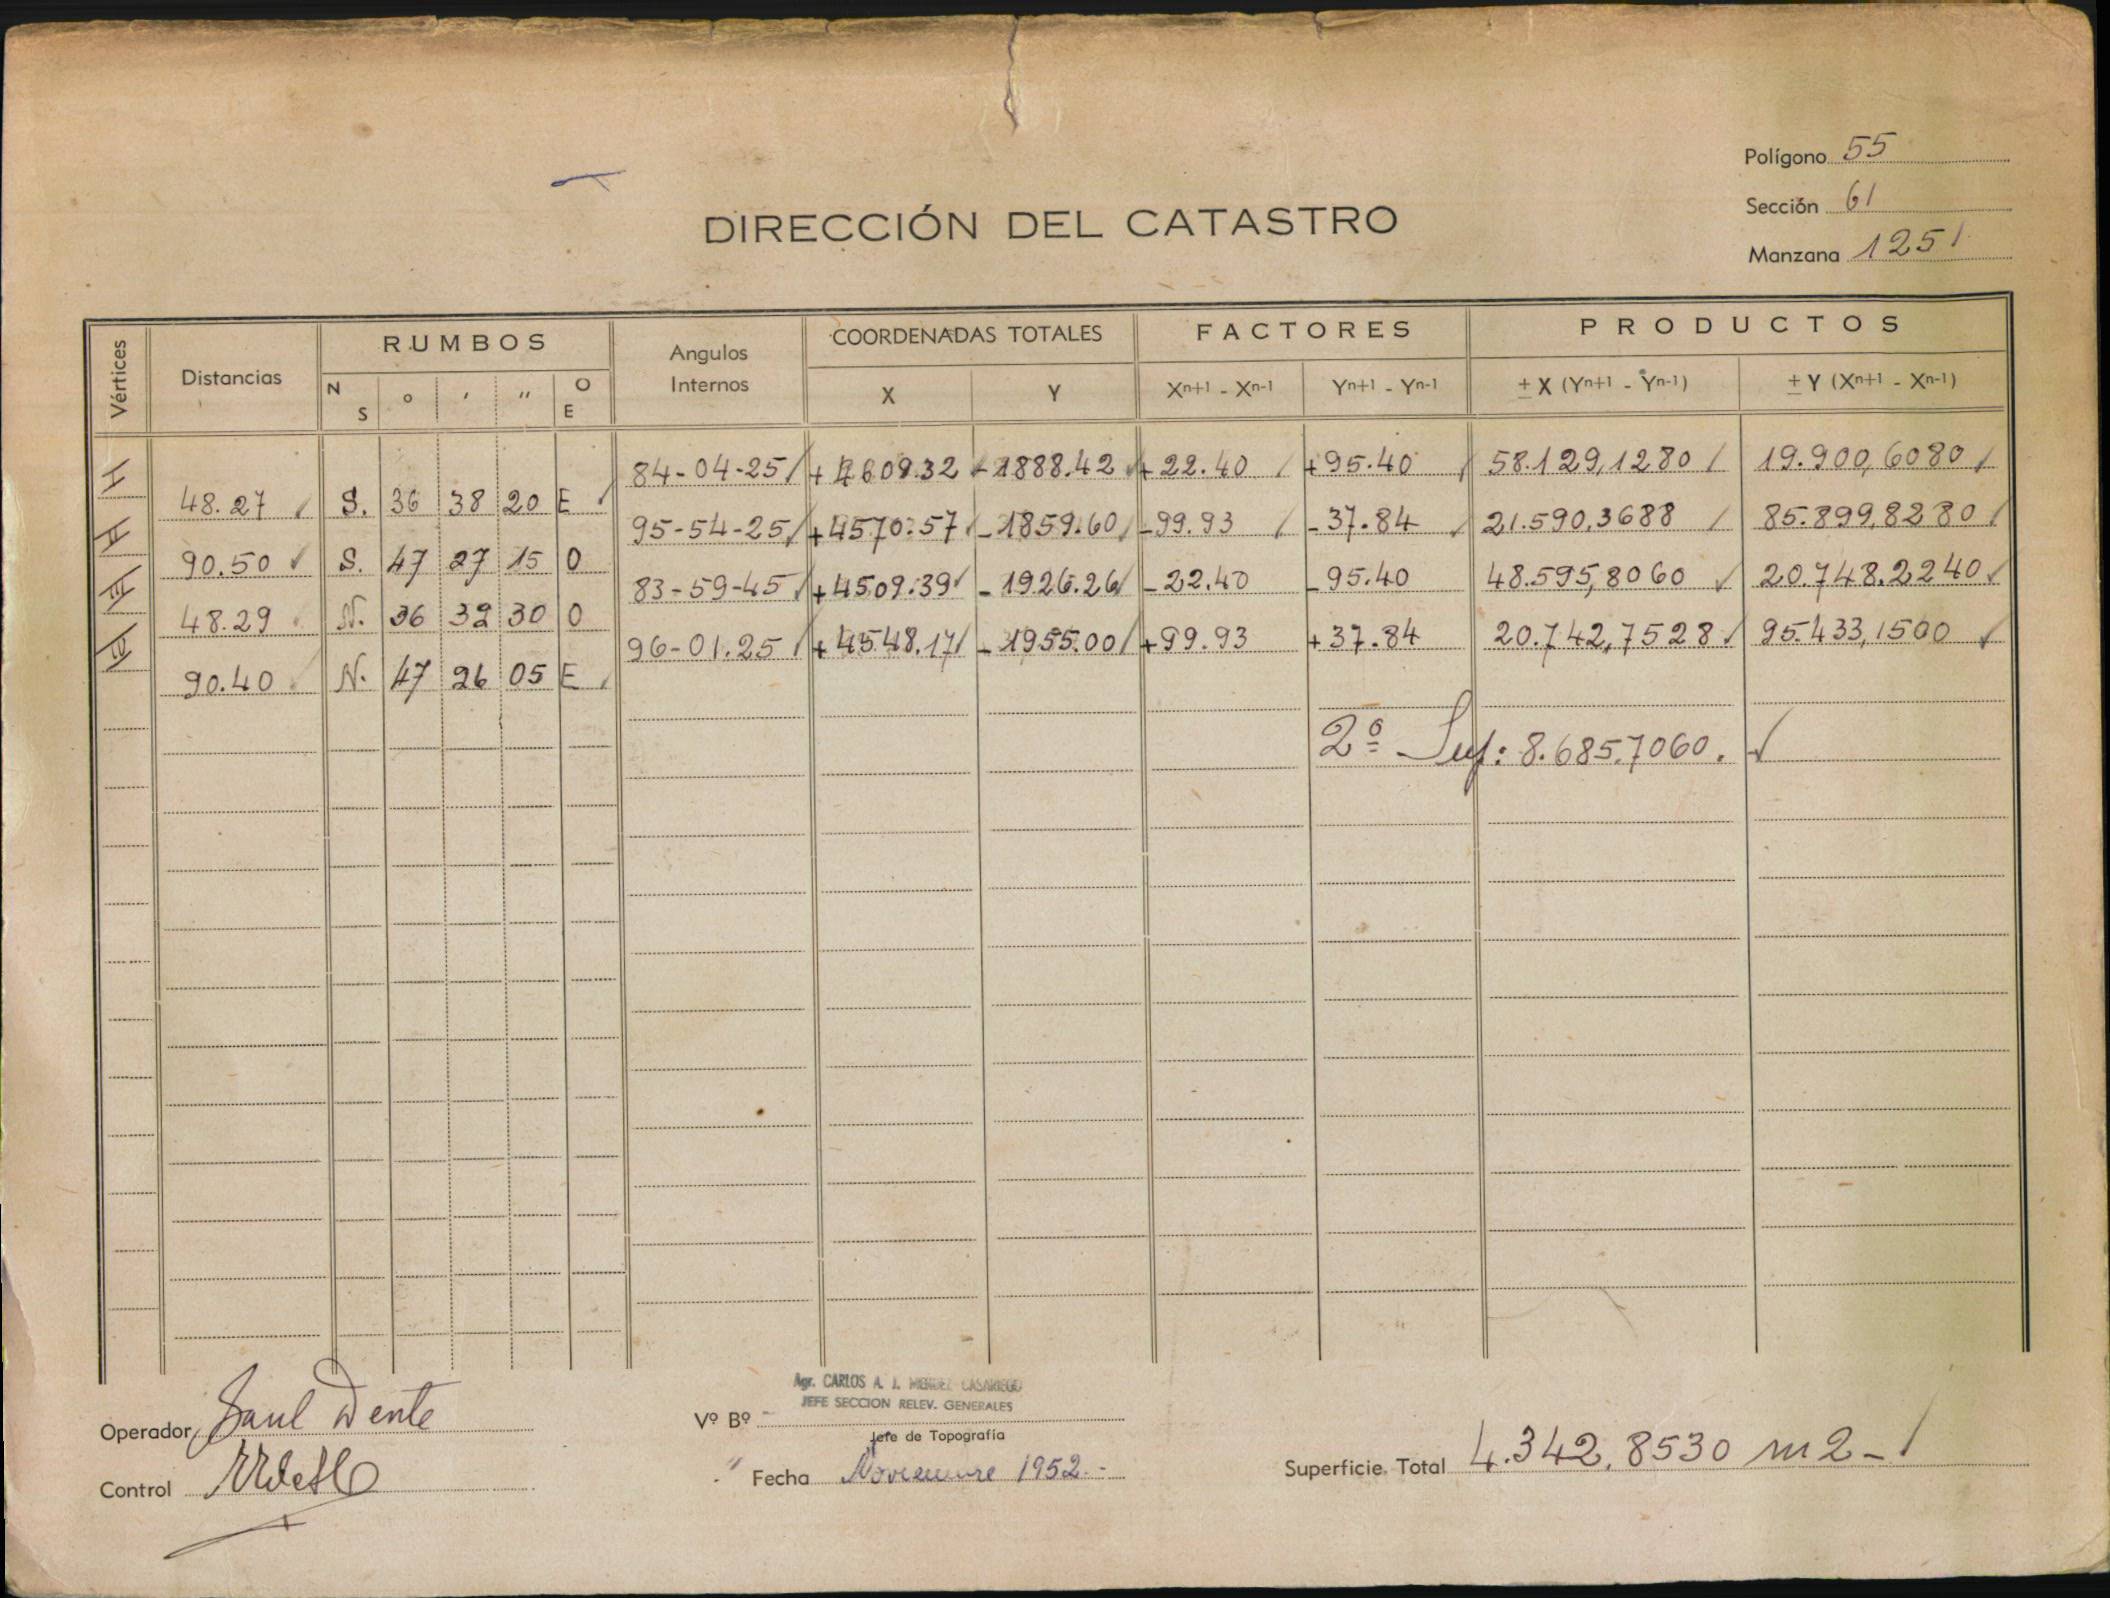 Polígono 55
Sección 61
Manzana 1251
DIRECCIÓN DEL CATASTRO
Vértices Distancias RUMBOS Angulos Internos COORDENADAS TOTALES FACTORES PRODUCTOS
N S ° ' " O E X Y Xn+1 - Xn-1 Yn+1 - Yn-1 ± X (Yn+1 - Yn-1) ± Y (Xn+1 - Xn-1)
84-04-25 +4609.32 -1888.42 +22.40 +95.40 58.129,1280 19.900,6080
48.27 S. 36 38 20 E
95-54-25 +4570.57 -1859.60 -99.93 -37.84 21.590,3688 85.899,8280
90.50 S. 47 27 15 O
83-59-45 +4509.39 -1926.26 -22.40 -95.40 48.595,8060 20.748.2240
48.29 N. 36 32 30 O
96-01.25 +4548.17 -1955.00 +99.93 +37.84 20.742,7528 95.433,1500
90.40 N. 47 26 05 E
2º Sup: 8.685.7060.
Agr. CARLOS A. J. MENDEZ CASARIEGO
JEFE SECCION RELEV. GENERALES
Operador Saul Dente
Vº Bº
Jefe de Topografía
Control
Fecha Noviembre 1952.-
Superficie Total 4.342,8530 m2-